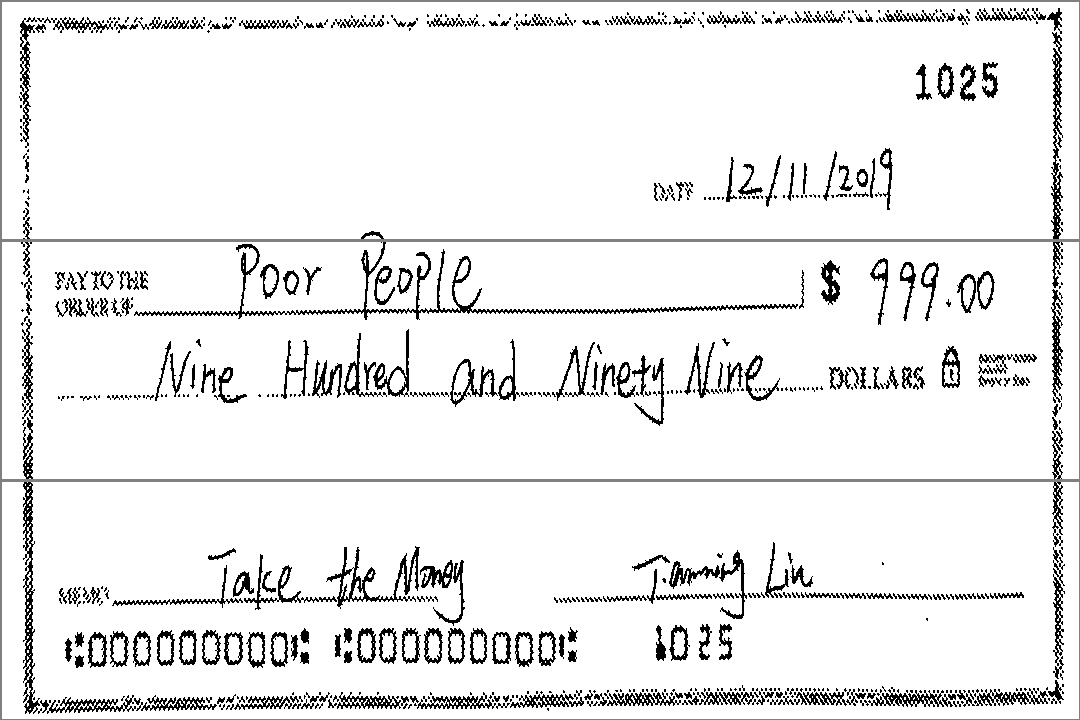 1025
DATE 12/11/2019
PAY TO THE
ORDER OF Poor People $ 999.00
Nine Hundred and Ninety Nine DOLLARS
MEMO Take the Money Tanming Liu
⑆000000000⑆ ⑆000000000⑆ 1025